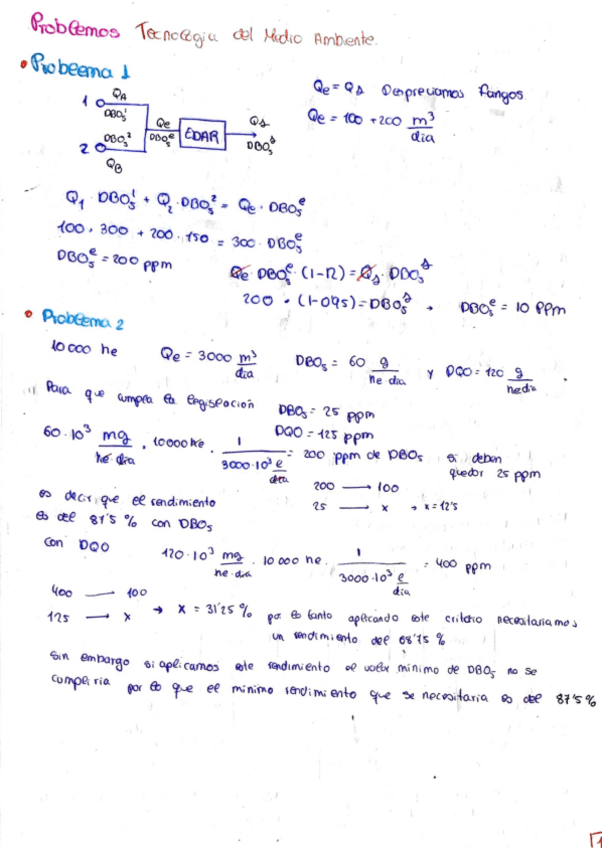 Problemas Tecnología del Medio Ambiente.
• Problema 1
1 QA DBO₅¹
2 DBO₅² QB
Qe DBO₅ᵉ EDAR Qs DBO₅ˢ
Qe = Qs Despreciamos fangos.
Qe = 100 + 200 m³/dia
Q₁ · DBO₅¹ + Q₂ · DBO₅² = Qe · DBO₅ᵉ
100 · 300 + 200 · 150 = 300 · DBO₅ᵉ
DBO₅ᵉ = 200 ppm
Qe · DBO₅ᵉ · (1-η) = Qs · DBO₅ˢ
200 · (1-0'95) = DBO₅ˢ → DBO₅ᵉ = 10 ppm
• Problema 2
10 000 he Qe = 3000 m³/dia DBO₅ = 60 g/he·dia y DQO = 120 g/he·dia
Para que cumpla la legislación DBO₅ = 25 ppm
DQO = 125 ppm
60·10³ mg/he·dia · 10 000 he · 1/3000·10³ l/dia = 200 ppm de DBO₅ si deben
quedar 25 ppm
200 — 100
25 — x → x = 12'5
es decir que el rendimiento
es del 87'5 % con DBO₅
Con DQO 120·10³ mg/he·dia · 10 000 he · 1/3000·10³ l/dia = 400 ppm
400 — 100
125 — x → x = 31'25 % por lo tanto aplicando este criterio necesitariamos
un rendimiento del 68'75 %
Sin embargo si aplicamos este rendimiento el valor minimo de DBO₅ no se
cumpliria por lo que el minimo rendimiento que se necesitaria es del 87'5 %
1